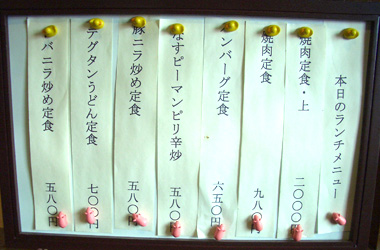 本日のランチメニュー
焼肉定食・上 二〇〇〇円
焼肉定食 九八〇円
ンバーグ定食 六五〇円
なすピーマンピリ辛炒 五八〇円
豚ニラ炒め定食 五八〇円
テグタンうどん定食 七〇〇円
バニラ炒め定食 五八〇円